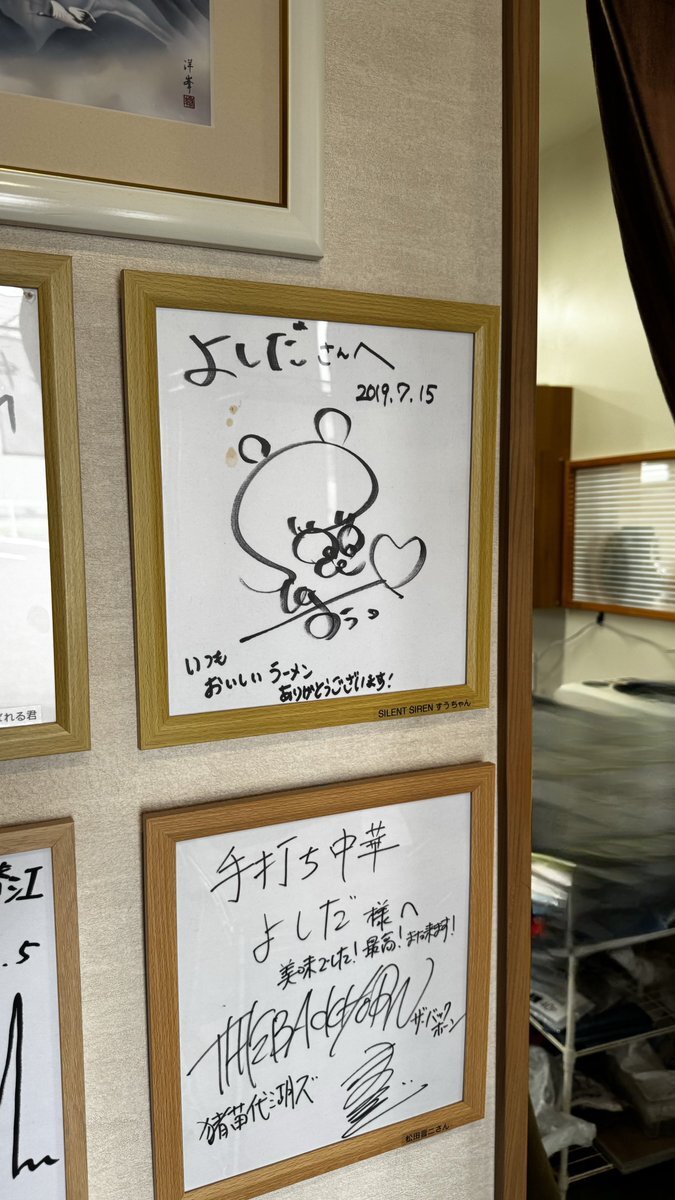 洋峯
よしださんへ
2019.7.15
いつも
おいしいラーメン
ありがとうございます!
SILENT SIREN すうちゃん
ばれる君
江
.5
手打ち中華
よしだ様へ
美味でした!最高!また来ます!
THE BACK HORN
ザ・バック
ホーン
猪苗代湖ズ
松田晋二さん